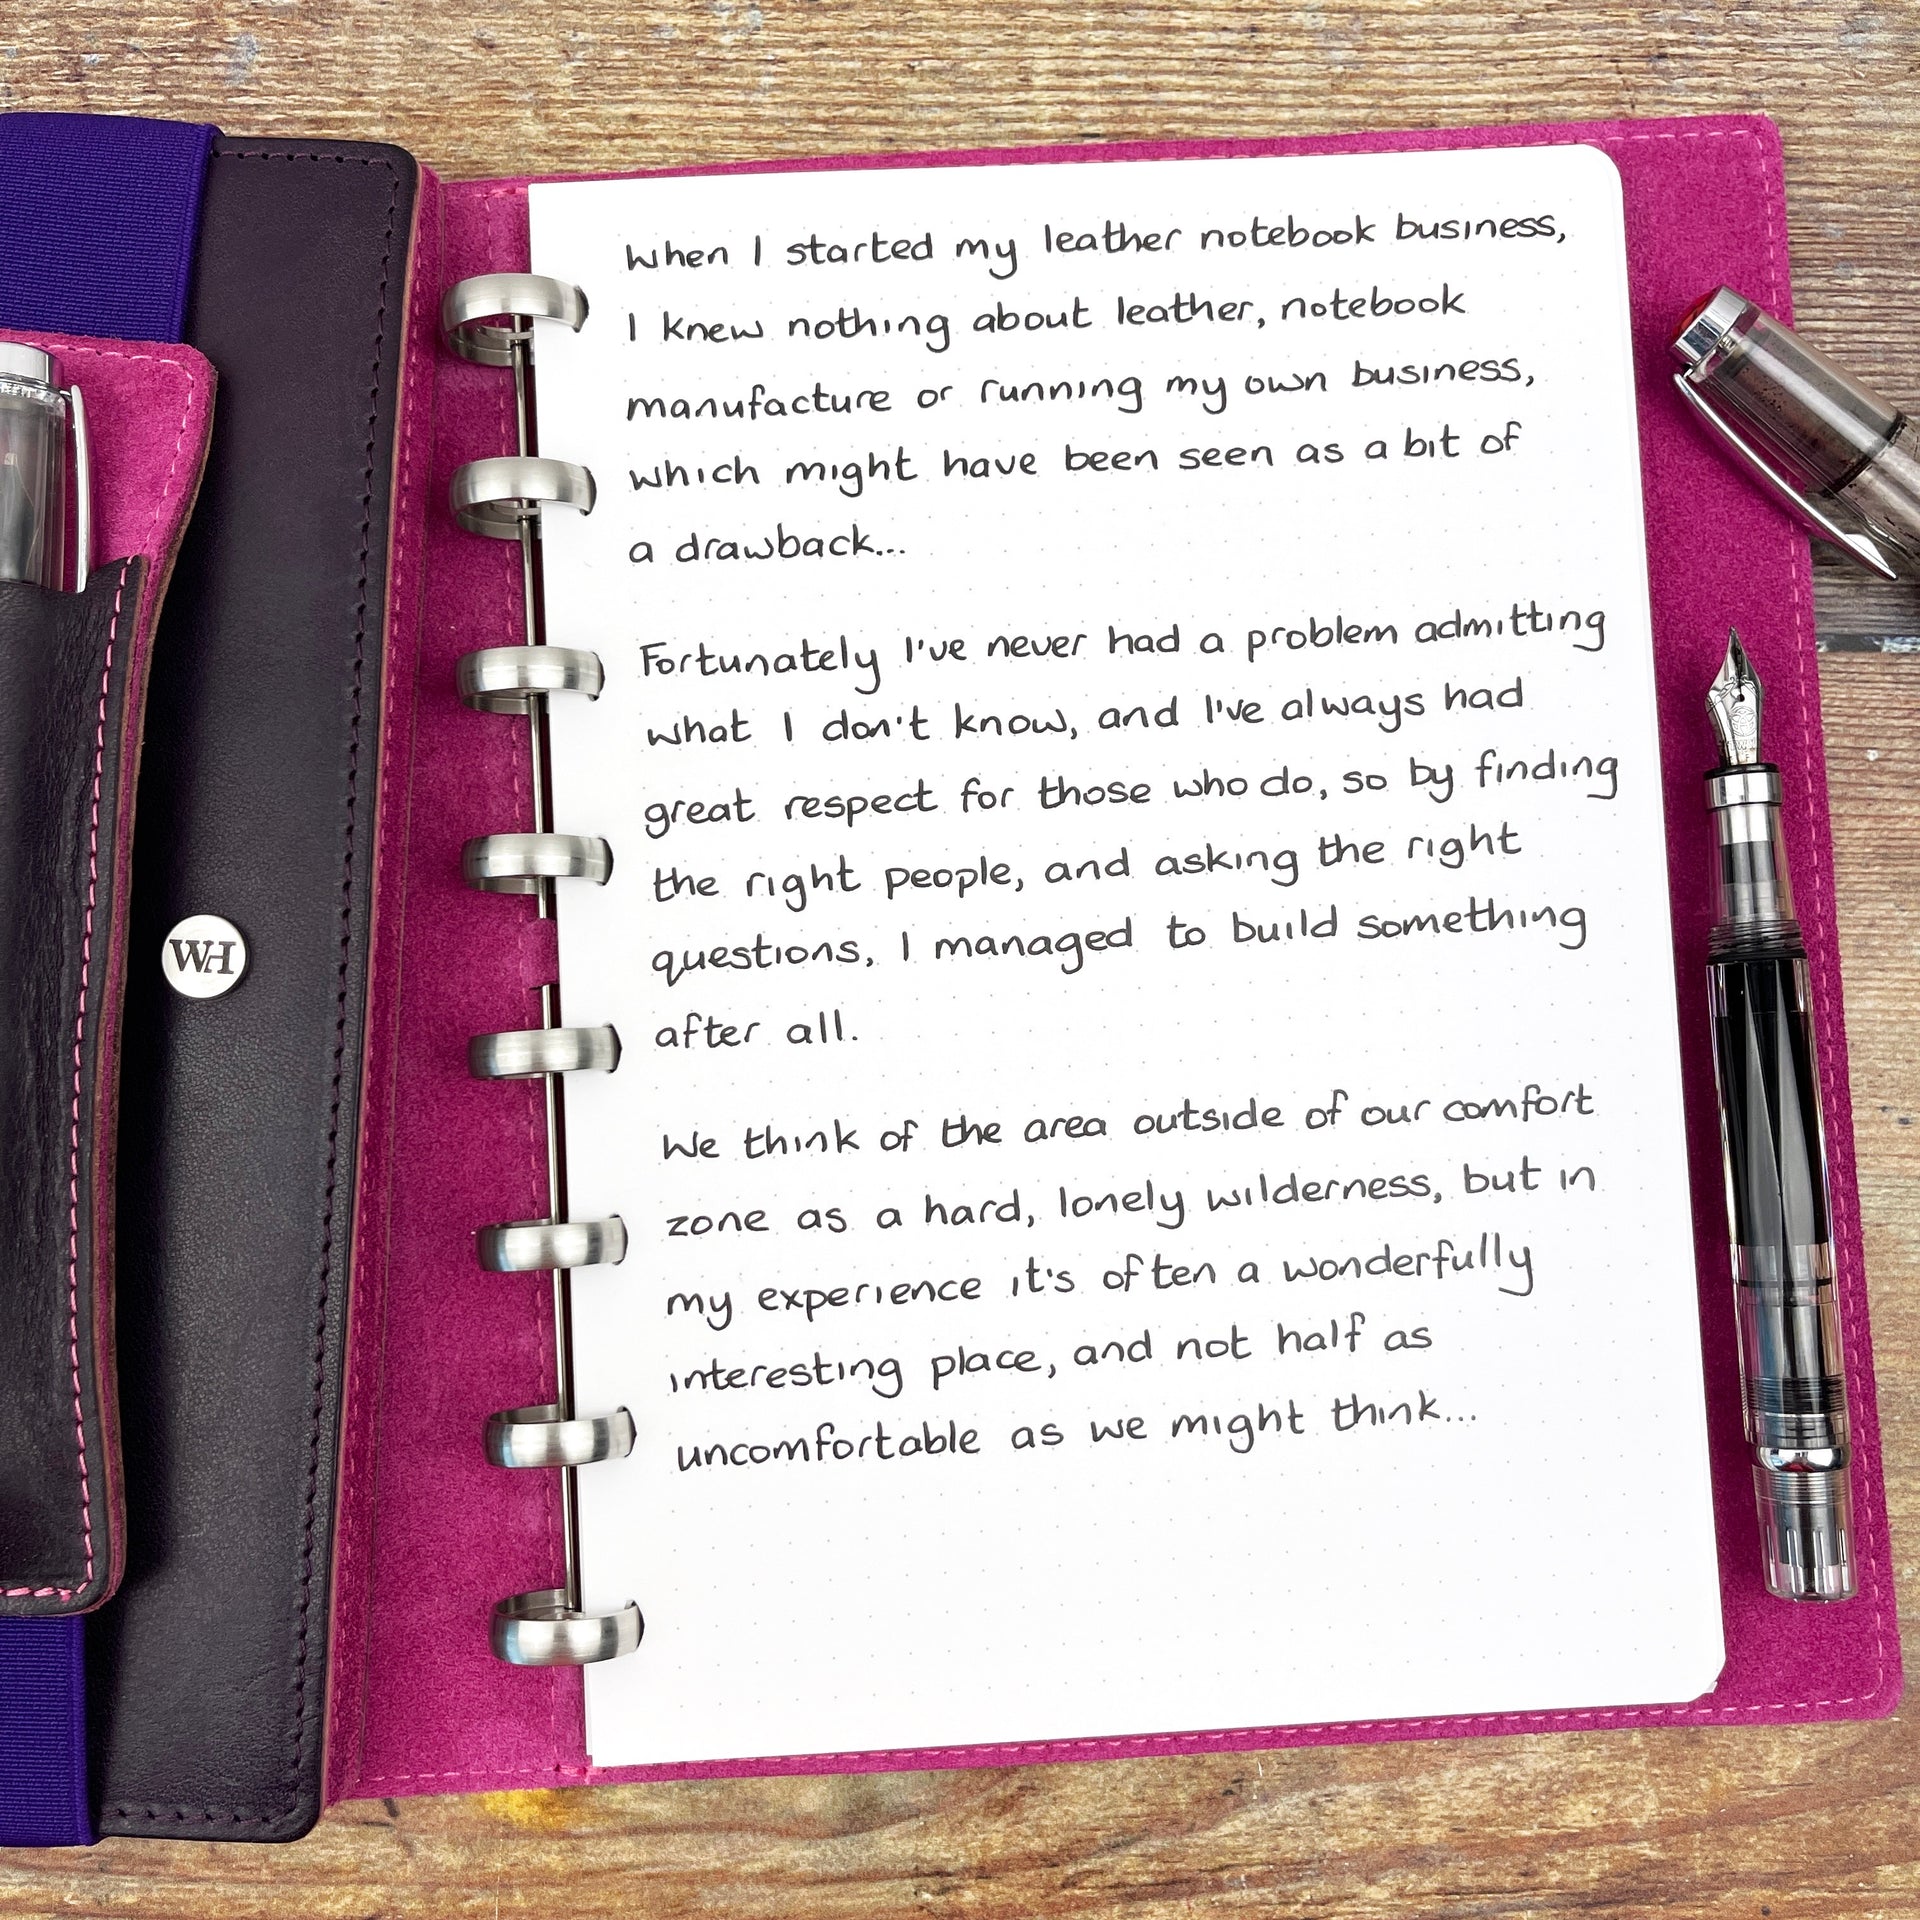 WH
When I started my leather notebook business,
I knew nothing about leather, notebook
manufacture or running my own business,
which might have been seen as a bit of
a drawback...
Fortunately I've never had a problem admitting
what I don't know, and I've always had
great respect for those who do, so by finding
the right people, and asking the right
questions, I managed to build something
after all.
We think of the area outside of our comfort
zone as a hard, lonely wilderness, but in
my experience it's often a wonderfully
interesting place, and not half as
uncomfortable as we might think...